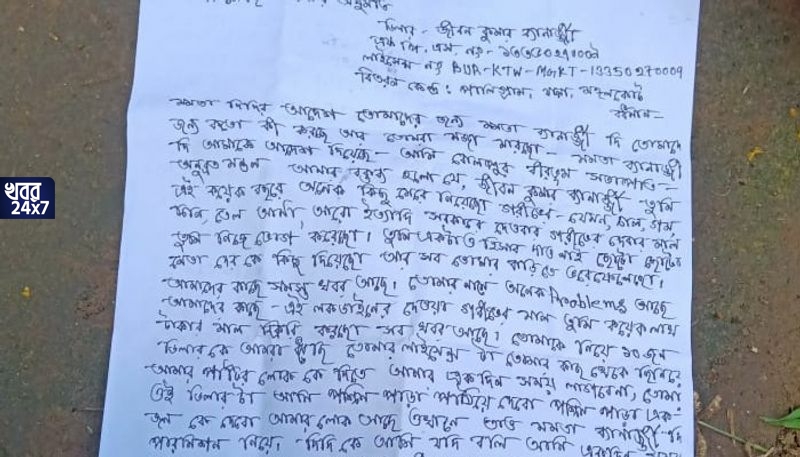 ডিলার - জীবন কুমার ব্যানার্জ্জী
এফ পি, এস. নং- ১৩৩৫০২৭০০০৯
লাইসেন্স নং BUR-KTW-MGKT-13350270009
বিতরন কেন্দ্র : পালিগ্রাম, থানা, মঙ্গলকোট
বর্ধমান-
মমতা দিদির আদেশ তোমাদের জন্যে মমতা ব্যানার্জ্জী দি তোমাদে
জন্য কতো কী করছে আর তোমরা মজা মারছো - মমতা ব্যানার্জ্জী
দি আমাকে আদেশ দিয়েছে - আমি বোলপুর বীরভূম সভাপতি -
অনুব্রত মন্ডল আমার বক্তব্য হলো যে, জীবন কুমার ব্যানার্জ্জী তুমি
এই কয়েক বছরে অনেক কিছু মেরে নিয়েছো গরীবের - যেমন, চাল, গম,
চিনি, তেল আটা, আরো ইত্যাদি সরকারের দেওয়া গরীবের দেবার মাল
তুমি নিজে ভোগ করেছো। তুমি একটাও হিসাব দাও নাই ছোটো ছোটো
নেতা দের কে কিছু দিয়েছো আর সব তোমার বাড়িতে ভরেফেলেছো।
আমাদের কাছে সমস্ত খবর আছে। তোমার নামে অনেক Problems আছে
আমাদের কাছে - এই লকডাউনের দেওয়া গরীবের মাল তুমি কয়েক লাখ
টাকার মাল বিক্রি করেছো সব খবর আছে। তোমাকে নিয়ে ১০ জন
ডিলার কে আমরা তোমার লাইসেন্স টা তোমার কাছ থেকে ছিনিয়ে
আমার পার্টির লোক কে দিতে আমার একদিন সময় লাগবেনা, তোমা
এই ডিলার টা আমি পশ্চিম পাড়া পাঠিয়ে দেবো পশ্চিম পাড়া এক-
জন কে দেবো আমার লোক আছে ওখানে তাও মমতা ব্যানার্জ্জী দি
পারমিশন নিয়ে, দিদি কে আমি যদি বলি আমি
খবর
24x7